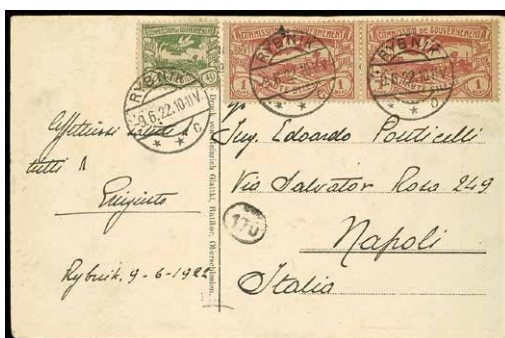 COMMISSION DE GOUVERNEMENT
COMMISSION DE GOUVERNEMENT
COMMISSION DE GOUVERNEMENT
HAUTE SILÉSIE
1 1
1 1
RYBNIK
9.6.22.10-11V.
* * c
RYBNIK
9.6.22.10-11V.
* * c
RYBNIK
9.6.22.10-11V.
* * c
Affettuosi saluti a
tutti
Rybnik. 9-6-1922
Druck von Heinrich Glattki, Ratibor, Oberschlesien.
170
Ing. Edoardo Ponticelli
Via Salvator Rosa 249
Napoli
Italia